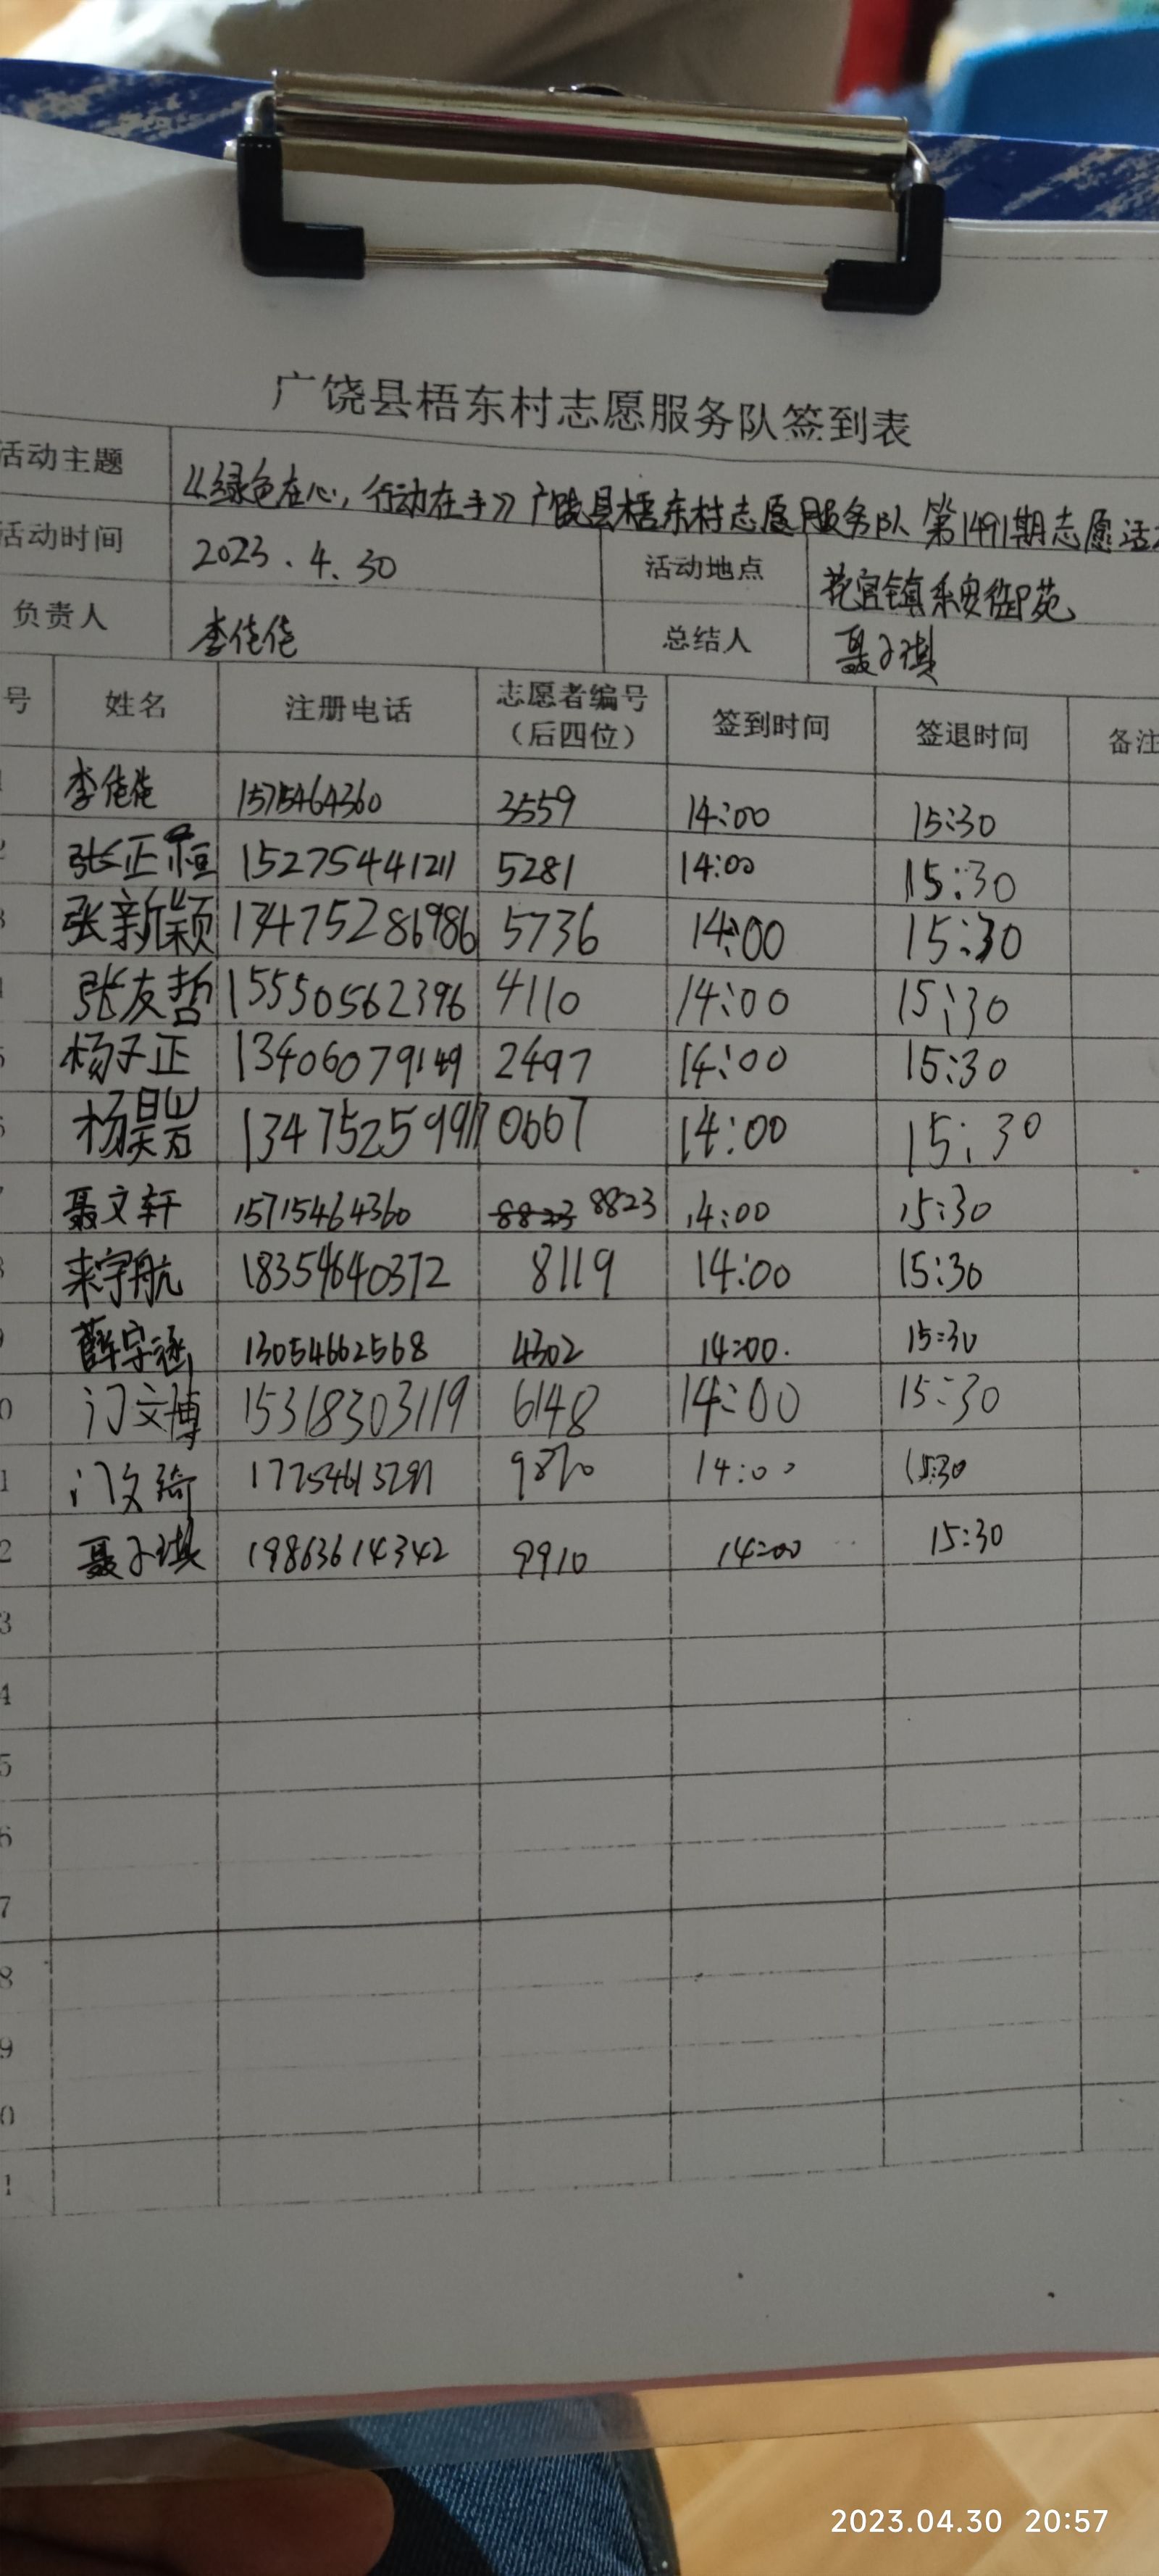 广饶县梧东村志愿服务队签到表
活动主题 《绿色在心，行动在手》广饶县梧东村志愿服务队第1491期志愿活
活动时间 2023.4.30 活动地点 花官镇 御苑
负责人 李佳佳 总结人 聂子琪
号 姓名 注册电话 志愿者编号（后四位） 签到时间 签退时间 备注
1 李佳佳 3559 14:00 15:30
2 张正恒 15275441211 5281 14:00 15:30
3 张新颖 13475286986 5736 14:00 15:30
4 张友哲 15550562396 4110 14:00 15:30
5 杨子正 13406079149 2497 14:00 15:30
6 杨昊岩 0667 14:00 15:30
7 聂文轩 15715464360 8823 8823 14:00 15:30
8 来宇航 18354640372 8119 14:00 15:30
9 薛宇涵 13054662568 4302 14:00. 15:30
0 门文博 15318303119 6148 14:00 15:30
1 门文琦 14:00 15:30
2 聂子琪 19863614342 9910 14:00 15:30
3
4
5
6
7
8
9
0
1
2023.04.30 20:57